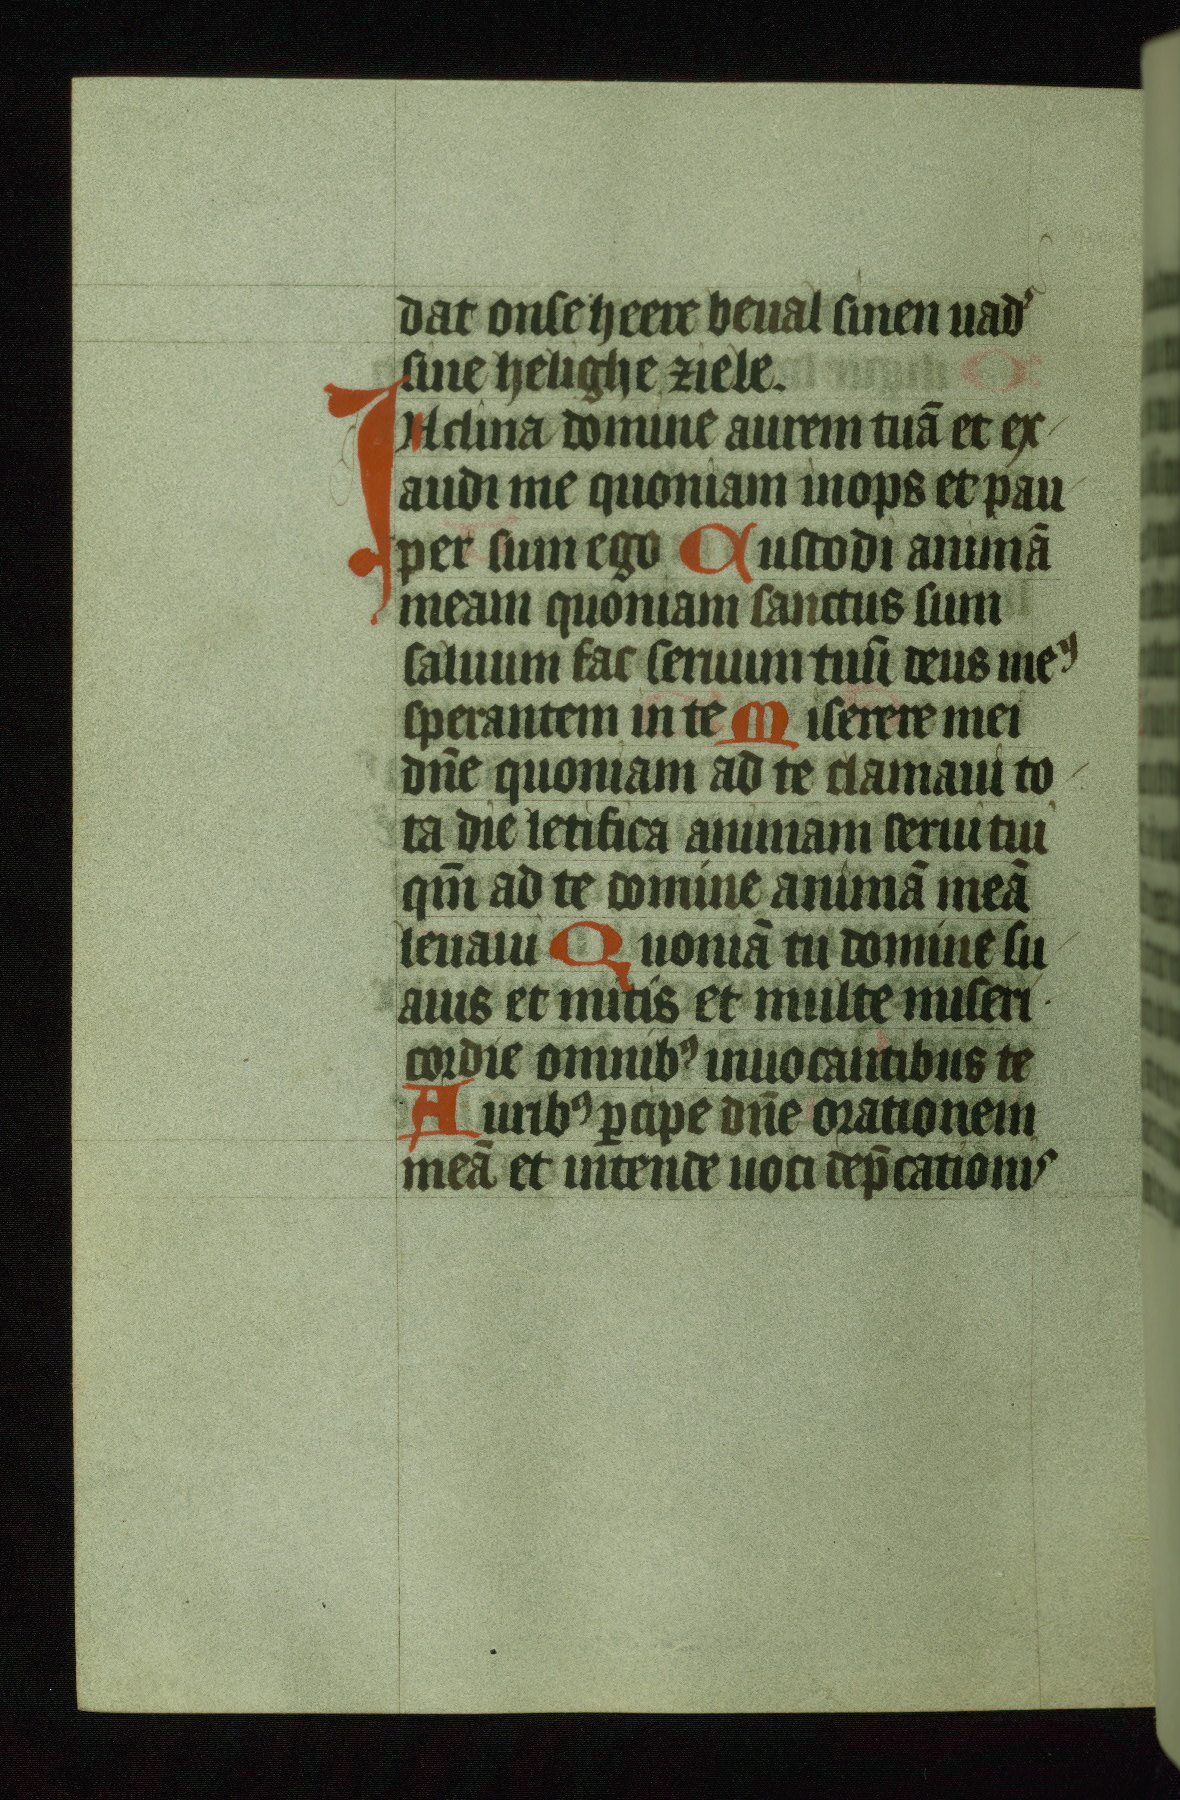 dat onse heere beual sinen uad'
sine helighe ziele.
INclina domine aurem tuā et ex
audi me quoniam inops et pau
per sum ego Custodi animā
meam quoniam sanctus sum
saluum fac seruum tuū deus meꝰ
sperantem in te Miserere mei
dn̄e quoniam ad te clamaui to
ta die letifica animam serui tui
qm̄ ad te domine animā meā
leuaui Quoniā tu domine su
auis et mitis et multe miseri
cordie omnibꝰ inuocantibus te
Auribꝰ ꝑcipe dn̄e orationem
meā et intende uoci dep̄cationis